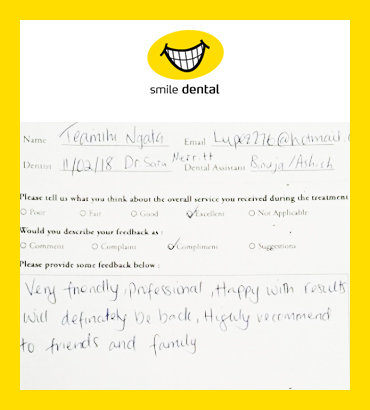 smile dental
Name Teamihi Ngata Email @hotmail.
Dentist 11/02/18 Dr Sara Merritt Dental Assistant /Ashish
Please tell us what you think about the overall service you received during the treatment
Poor Fair Good Excellent Not Applicable
Would you describe your feedback as :
Comment Complaint Compliment Suggestions
Please provide some feedback below :
Very friendly, Professional, Happy with results
will definately be back, Highly recommend
to friends and family